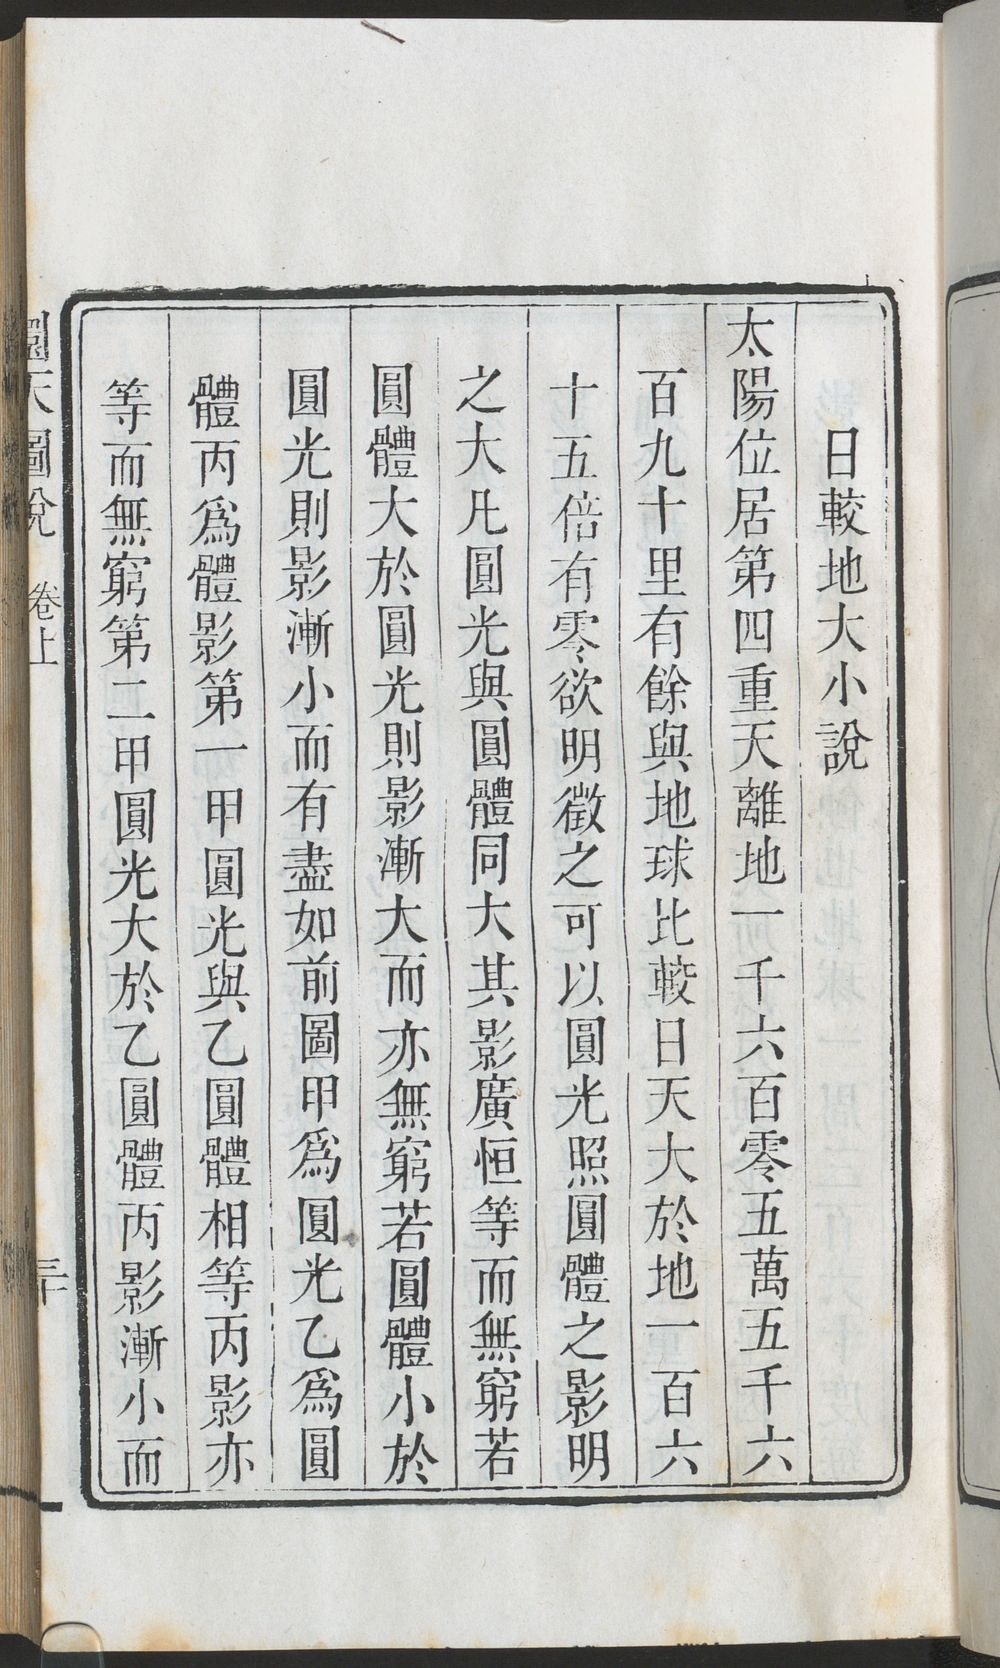 日較地大小說
太陽位居第四重天離地一千六百零五萬五千六
百九十里有餘與地球比較日天大於地一百六
十五倍有零欲明徵之可以圓光照圓體之影明
之大凡圓光與圓體同大其影廣恒等而無窮若
圓體大於圓光則影漸大而亦無窮若圓體小於
圓光則影漸小而有盡如前圖甲爲圓光乙爲圓
體丙爲體影第一甲圓光與乙圓體相等丙影亦
等而無窮第二甲圓光大於乙圓體丙影漸小而
圜天圖說 卷上 三十